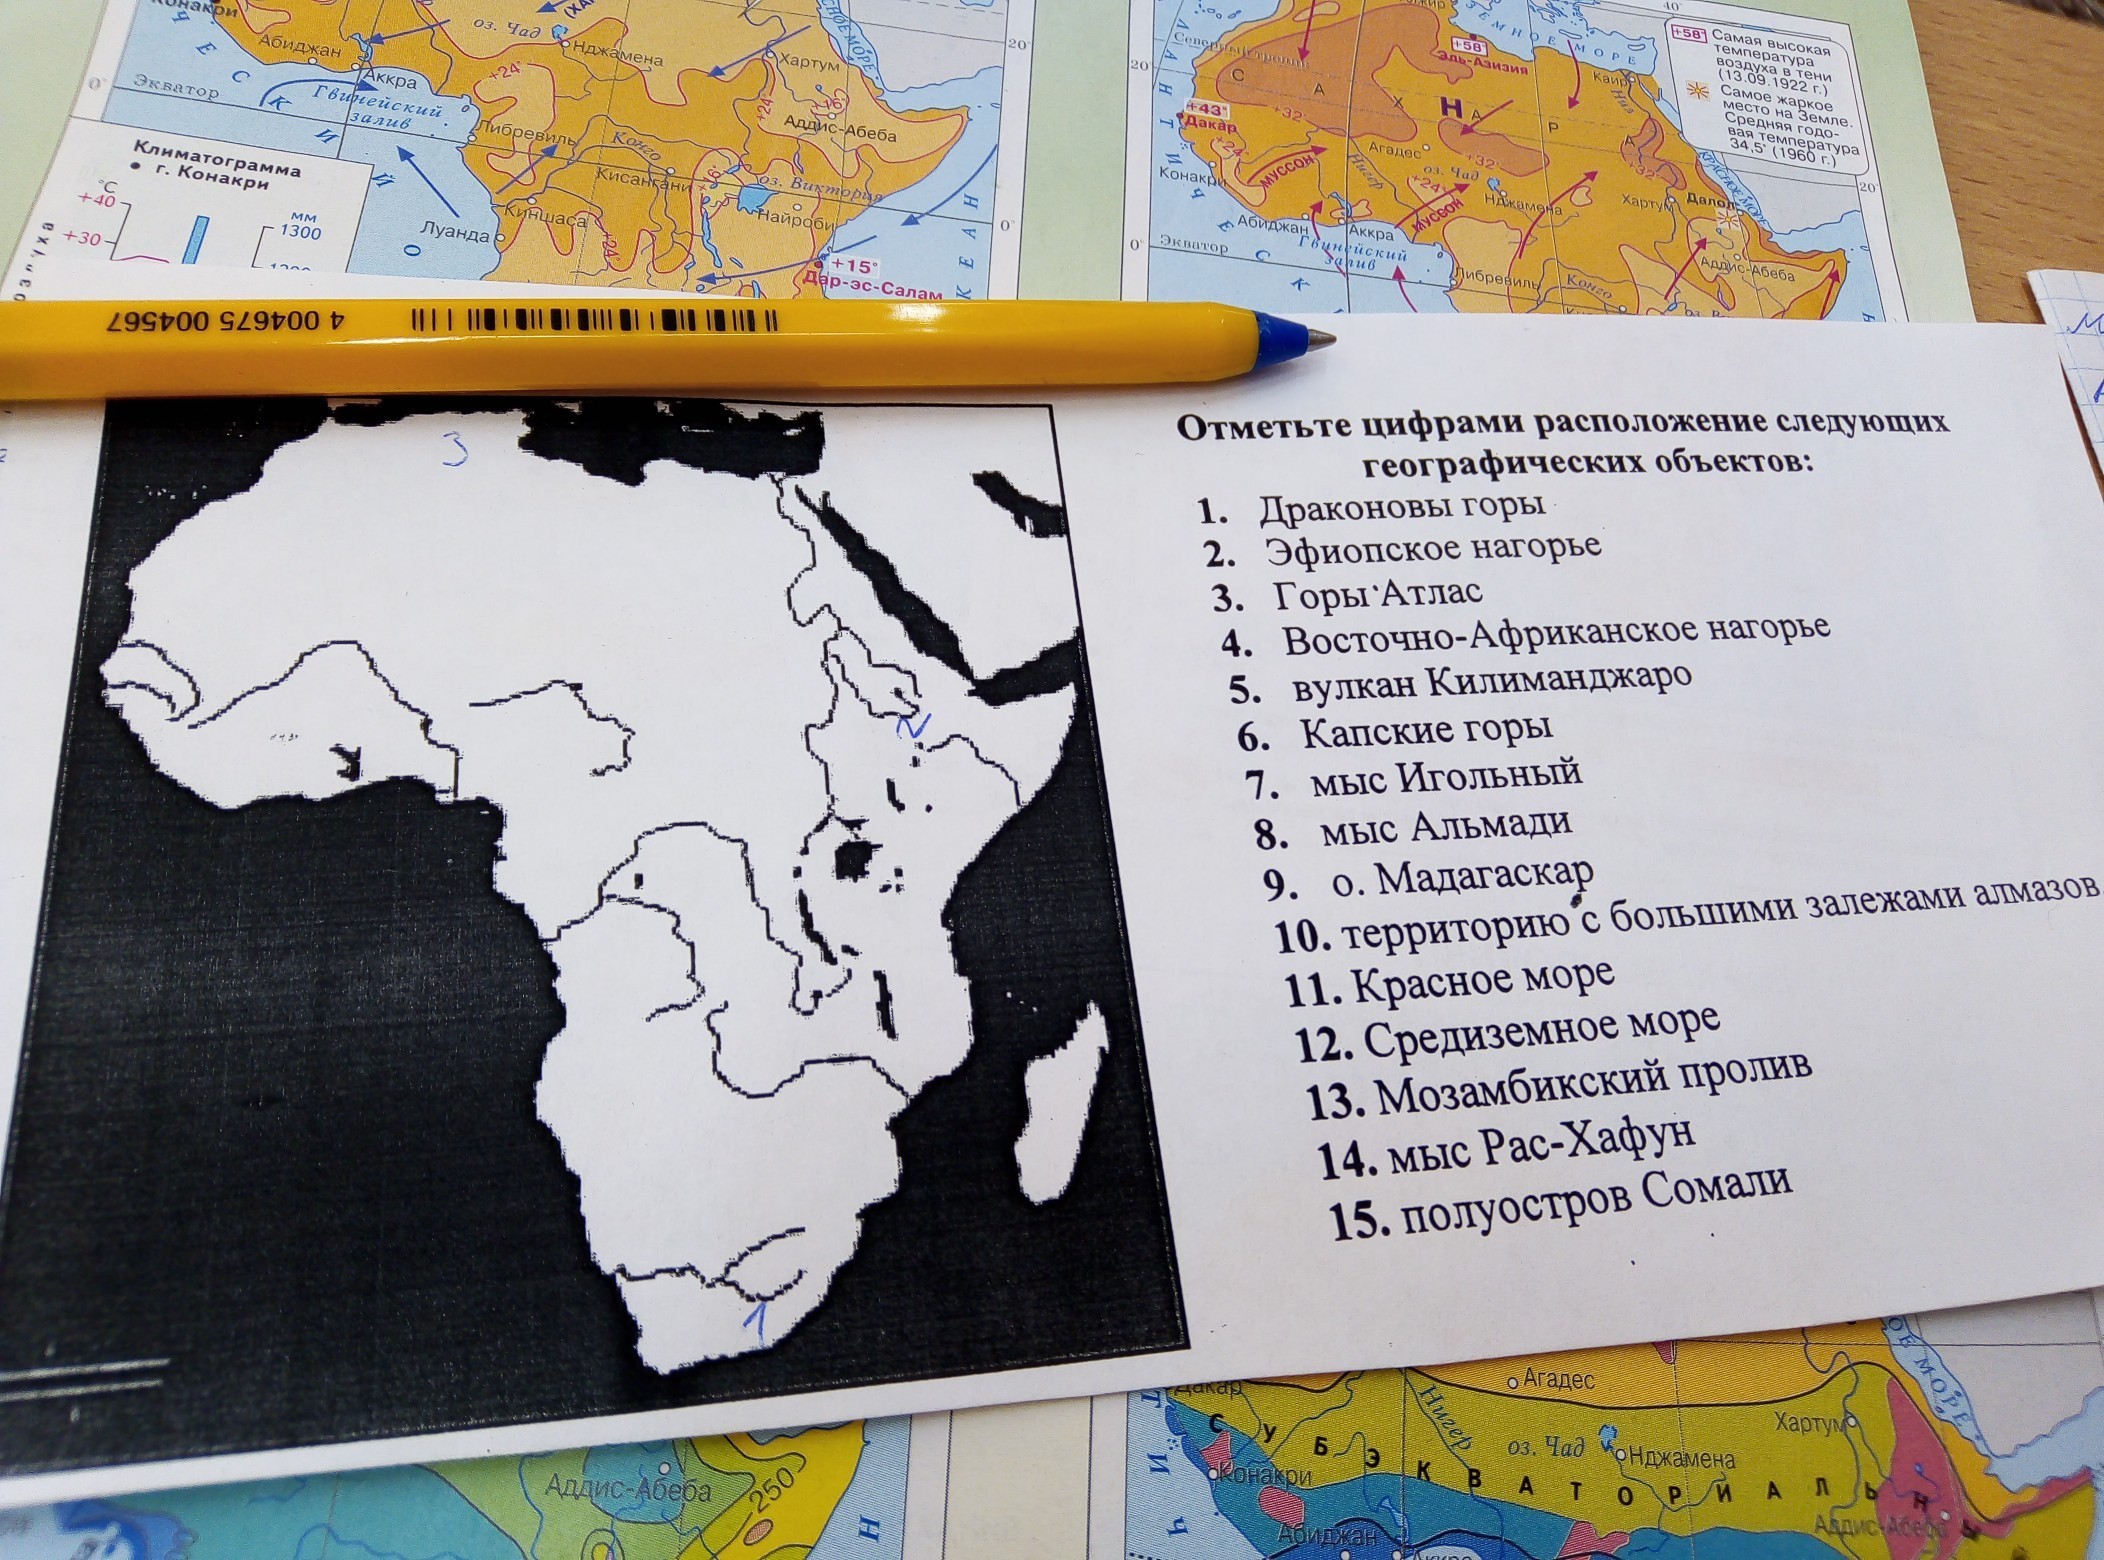 Конакри
Абиджан
Аккра
оз. Чад
Нджамена
Хартум
Аддис-Абеба
20°
0°
Экватор
Гвинейский
залив
+24°
+24°
+16°
+16°
+24°
Либревиль
Конго
Кисангани
оз. Виктория
Найроби
Киншаса
Луанда
+15°
Дар-эс-Салам
0°
Климатограмма
г. Конакри
°C
+40
+30
мм
1300
40°
+58°
Эль-Азизия
Каир
Нил
20°
+43°
Дакар
+32°
+24°
С А Х А Р А
Н
Агадес
+32°
+32°
Конакри
муссон
Нигер
оз. Чад
+24°
муссон
Нджамена
Хартум
Далол
20°
КРАСНОЕ МОРЕ
Абиджан
Аккра
Гвинейский
залив
0°
Экватор
Либревиль
Конго
Аддис-Абеба
+58° Самая высокая
температура
воздуха в тени
(13.09.1922 г.)
Самое жаркое
место на Земле.
Средняя годо-
вая температура
34,5° (1960 г.)
4 004675 004567
Отметьте цифрами расположение следующих
географических объектов:
1. Драконовы горы
2. Эфиопское нагорье
3. Горы Атлас
4. Восточно-Африканское нагорье
5. вулкан Килиманджаро
6. Капские горы
7. мыс Игольный
8. мыс Альмади
9. о. Мадагаскар
10. территорию с большими залежами алмазов
11. Красное море
12. Средиземное море
13. Мозамбикский пролив
14. мыс Рас-Хафун
15. полуостров Сомали
3
2
1
Аддис-Абеба
250
Н
Дакар
Агадес
Нигер
оз. Чад
Нджамена
Хартум
СУБЭКВАТОРИАЛЬН
Конакри
Абиджан
Аккра
Аддис-Абеба